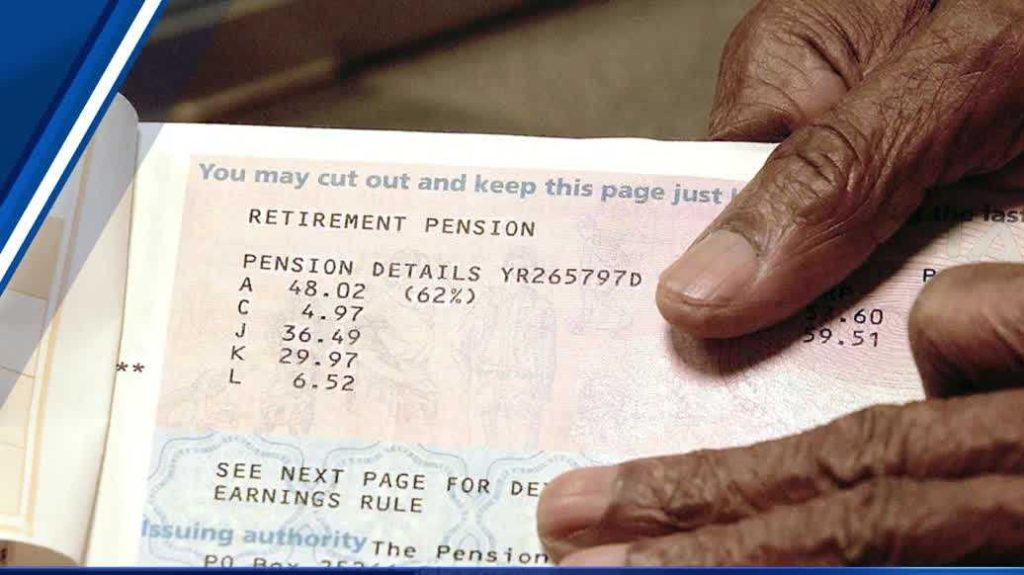 You may cut out and keep this page just
the last
RETIREMENT PENSION
PENSION DETAILS YR265797D
A 48.02 (62%)
C 4.97
J 36.49
K 29.97
L 6.52
.60
59.51
**
SEE NEXT PAGE FOR
EARNINGS RULE
Issuing authority The Pension
PO Box